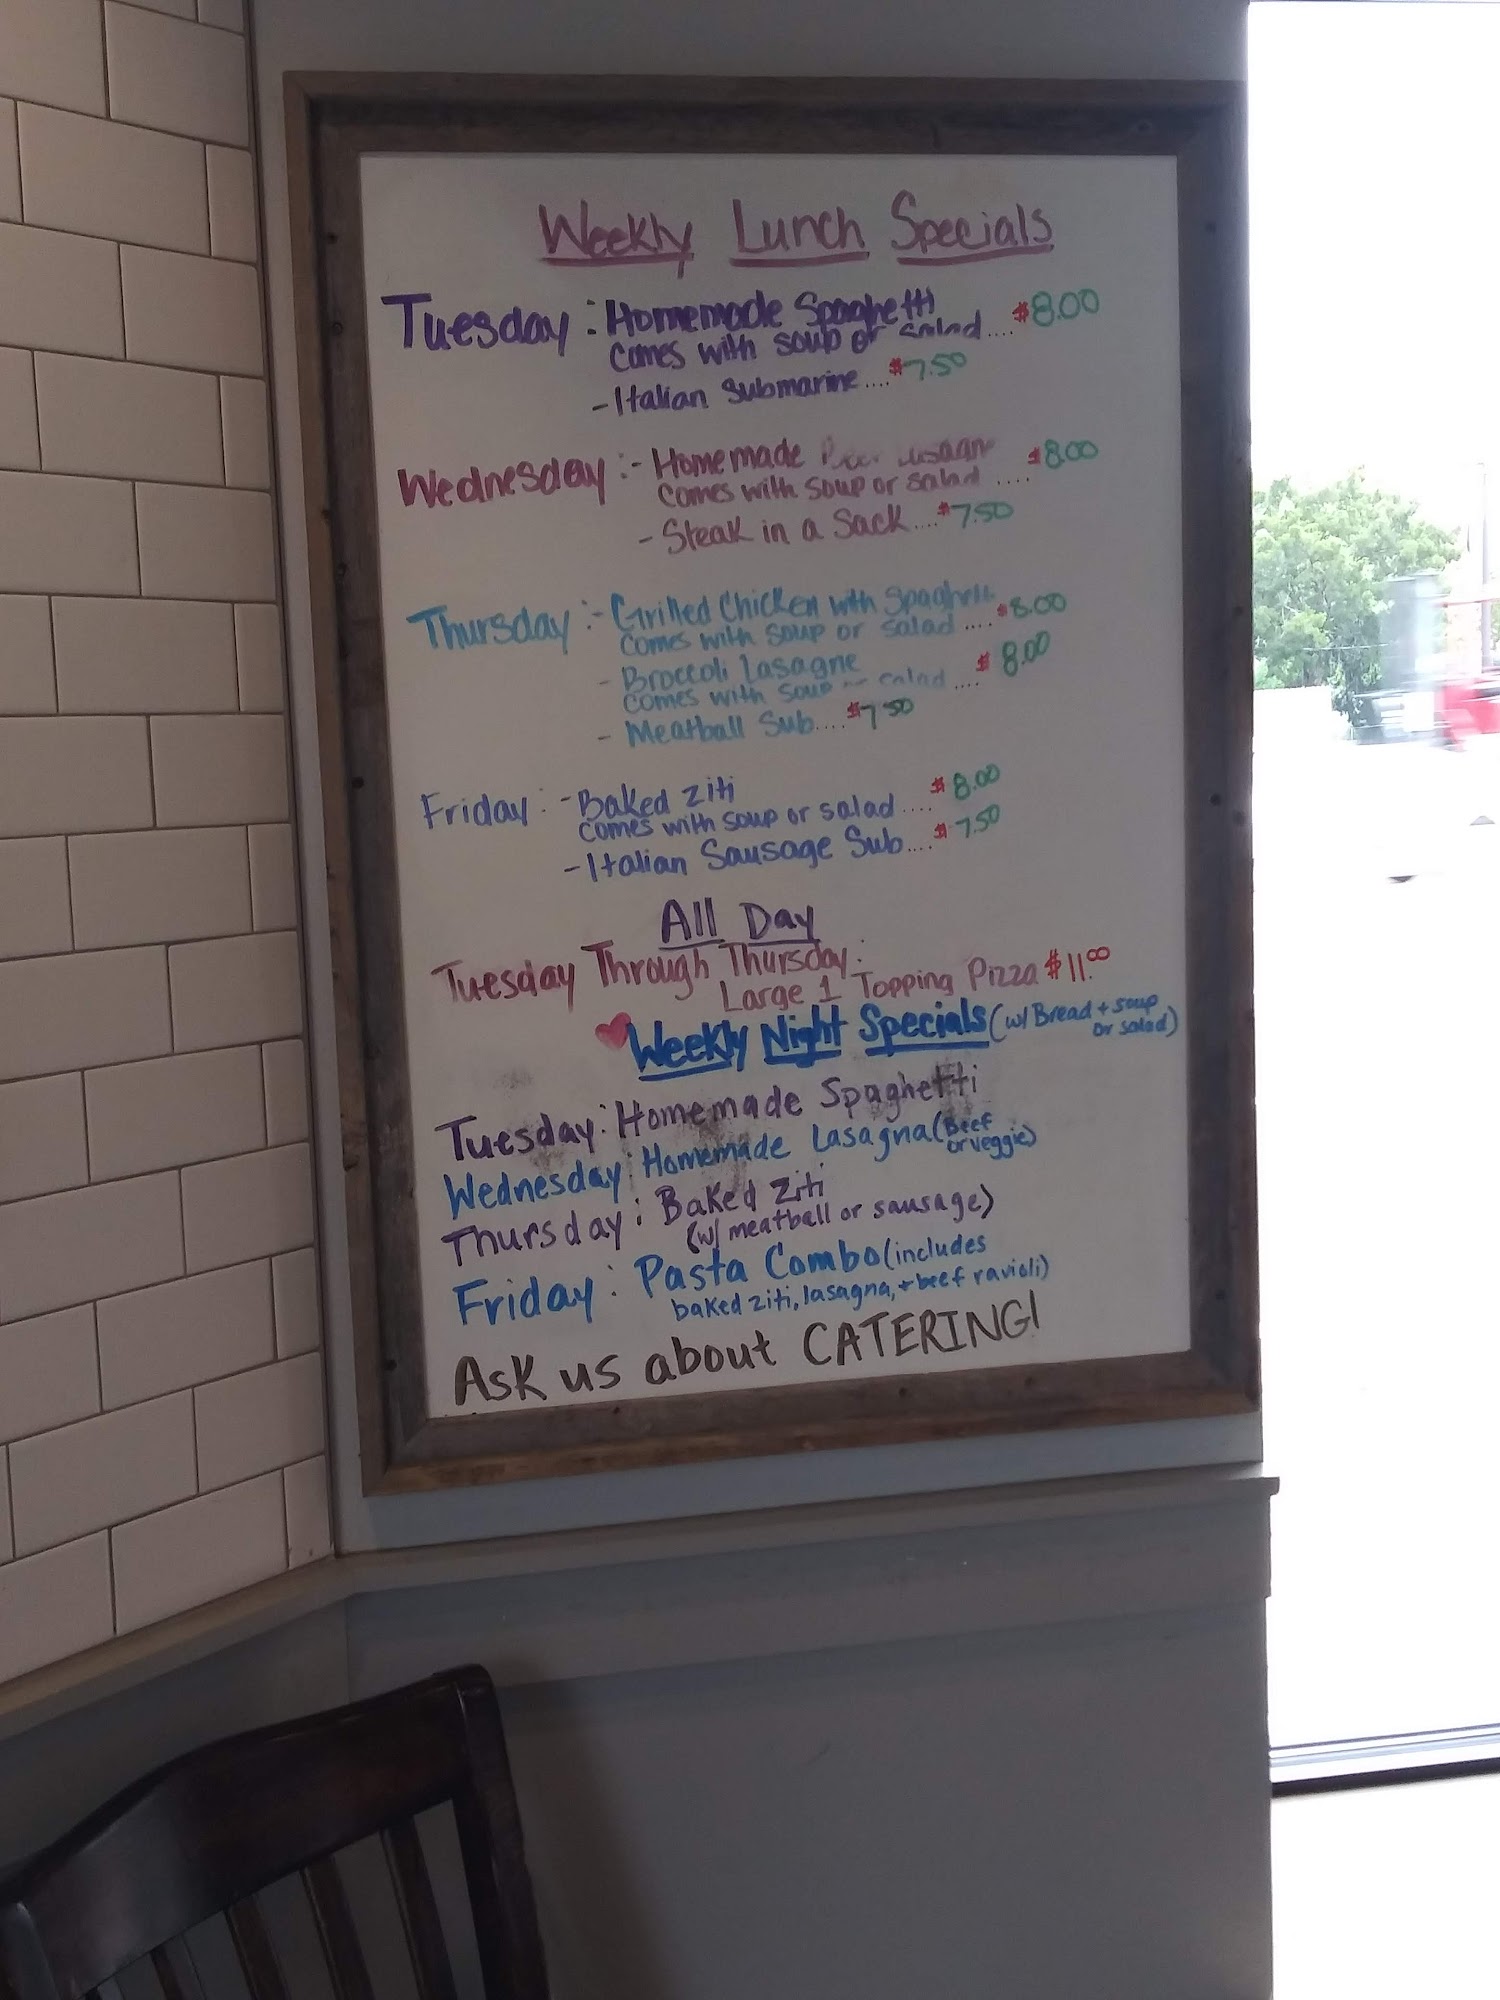 Weekly Lunch Specials
Tuesday: Homemade Spaghetti
comes with soup or salad.... $8.00
- Italian Submarine.... $7.50
Wednesday:- Homemade Beef Lasagne $8.00
comes with soup or salad ....
- Steak in a Sack.... $7.50
Thursday:- Grilled Chicken with Spaghetti
comes with soup or salad .... $8.00
- Broccoli Lasagne
comes with soup or salad .... $8.00
- Meatball Sub.... $7.50
Friday: - Baked Ziti
comes with soup or salad .... $8.00
- Italian Sausage Sub.... $7.50
All Day
Tuesday Through Thursday:
Large 1 Topping Pizza $11.00
Weekly Night Specials (w/ Bread + soup
or salad)
Tuesday: Homemade Spaghetti
Wednesday: Homemade Lasagna (Beef
or veggie)
Thursday: Baked Ziti
(w/ meatball or sausage)
Friday: Pasta Combo (includes
baked ziti, lasagna, + beef ravioli)
Ask us about CATERING!